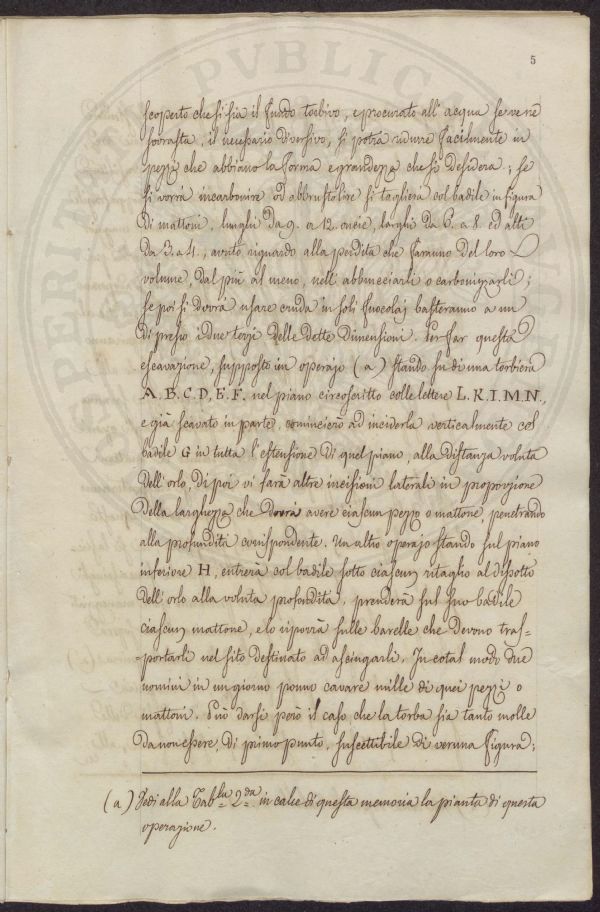 5
scoperto che si sia il fondo torbivo, e procurato all' acqua se ve n'è
sovrasta, il necessario diversivo, si potrà ridurre facilmente in
pezzi che abbiano la forma e grandezza che si desidera; se
si vorrà incarbonire od abbrustolire si taglierà col badile in figura
di mattoni, lunghi da 9. a 12. oncie, larghi da 6. a 8. ed alti
da 3. a 4., avuto riguardo alla perdita che faranno del loro
volume, dal più al meno, nell' abbrucciarli o carbonizzarli;
se poi si dovrà usare cruda in soli fuocolaj basteranno a un
di presso i due terzi delle dette dimensioni. Per far questa
escavazione, supposto un operajo (a) stando su di una torbiera
A. B. C. D. E. F. nel piano circoscritto colle lettere L. K. I. M. N.,
e già scavato in parte, comincierò ad inciderla verticalmente col
badile G in tutta l' estensione di quel piano alla distanza voluta
dell' orlo, di poi vi farà altre incisioni laterali in proporzione
della larghezza che dovrà avere ciascun pezzo o mattone, penetrando
alla profondità corrispondente. Un altro operajo stando sul piano
inferiore H, entrerà col badile sotto ciascun ritaglio al dissotto
dell' orlo alla voluta profondità, prenderà sul suo badile
ciascun mattone, e lo riporrà sulle barelle che devono tras=
=portarli nel sito destinato ad asciugarli. In cotal modo due
uomini in un giorno ponno cavare mille di quei pezzi o
mattoni. Può darsi però il caso, che la torba sia tanto molle
da non essere, di primo punto, suscettibile di veruna figura;
(a) Vedi alla Tab.la 2.da in calce di questa memoria la pianta di questa
operazione.